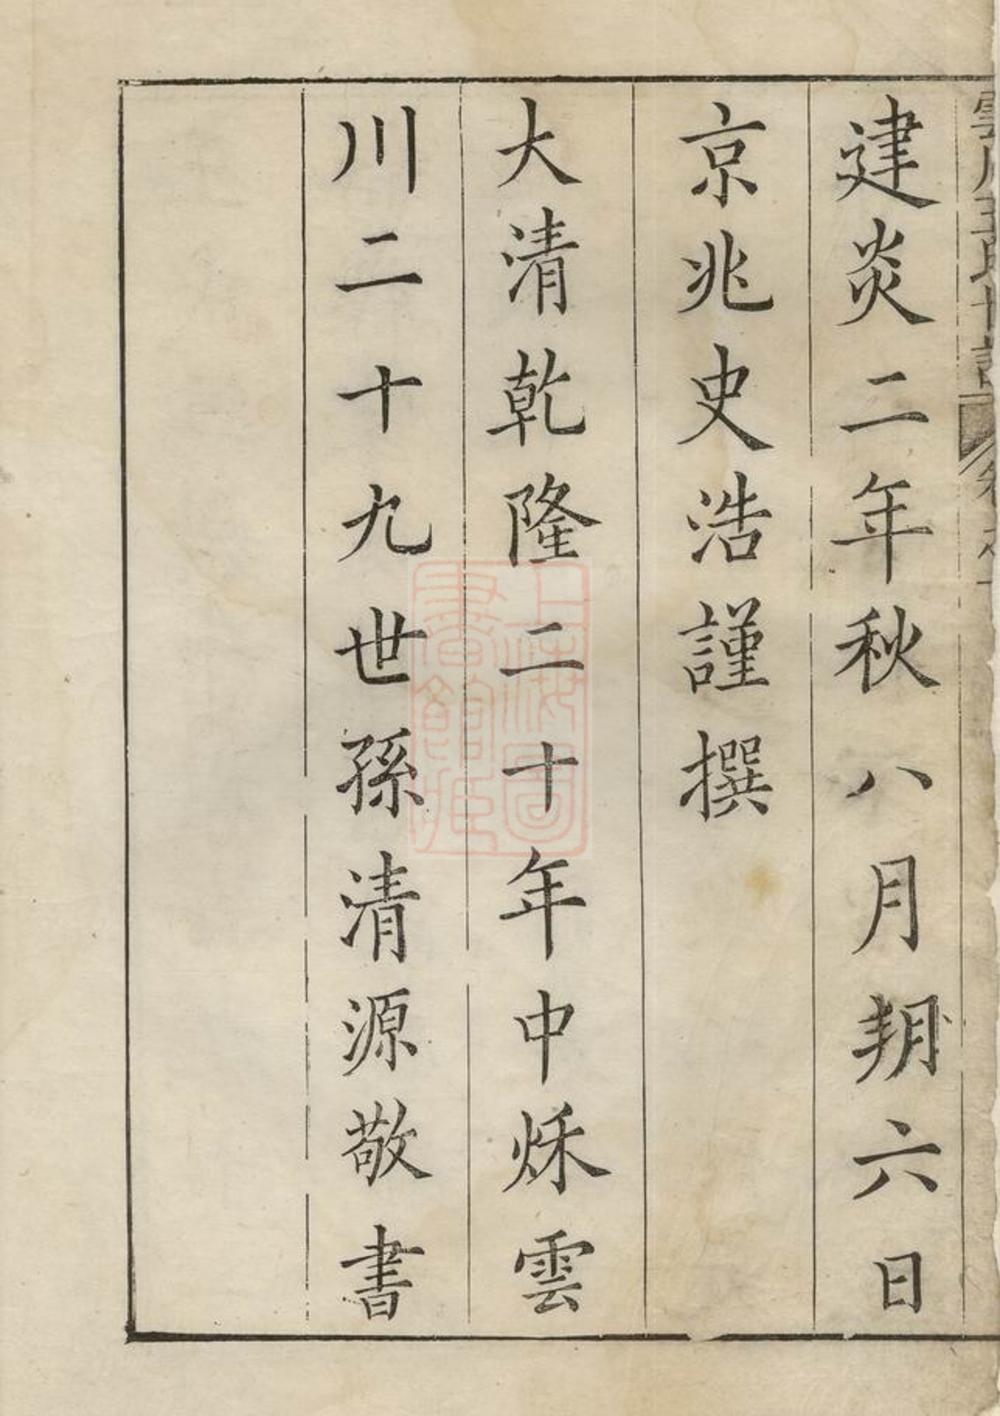 建炎二年秋八月朔六日
京兆史浩謹撰
大清乾隆二十年中烁雲
川二十九世孫清源敬書
上海圖書館藏